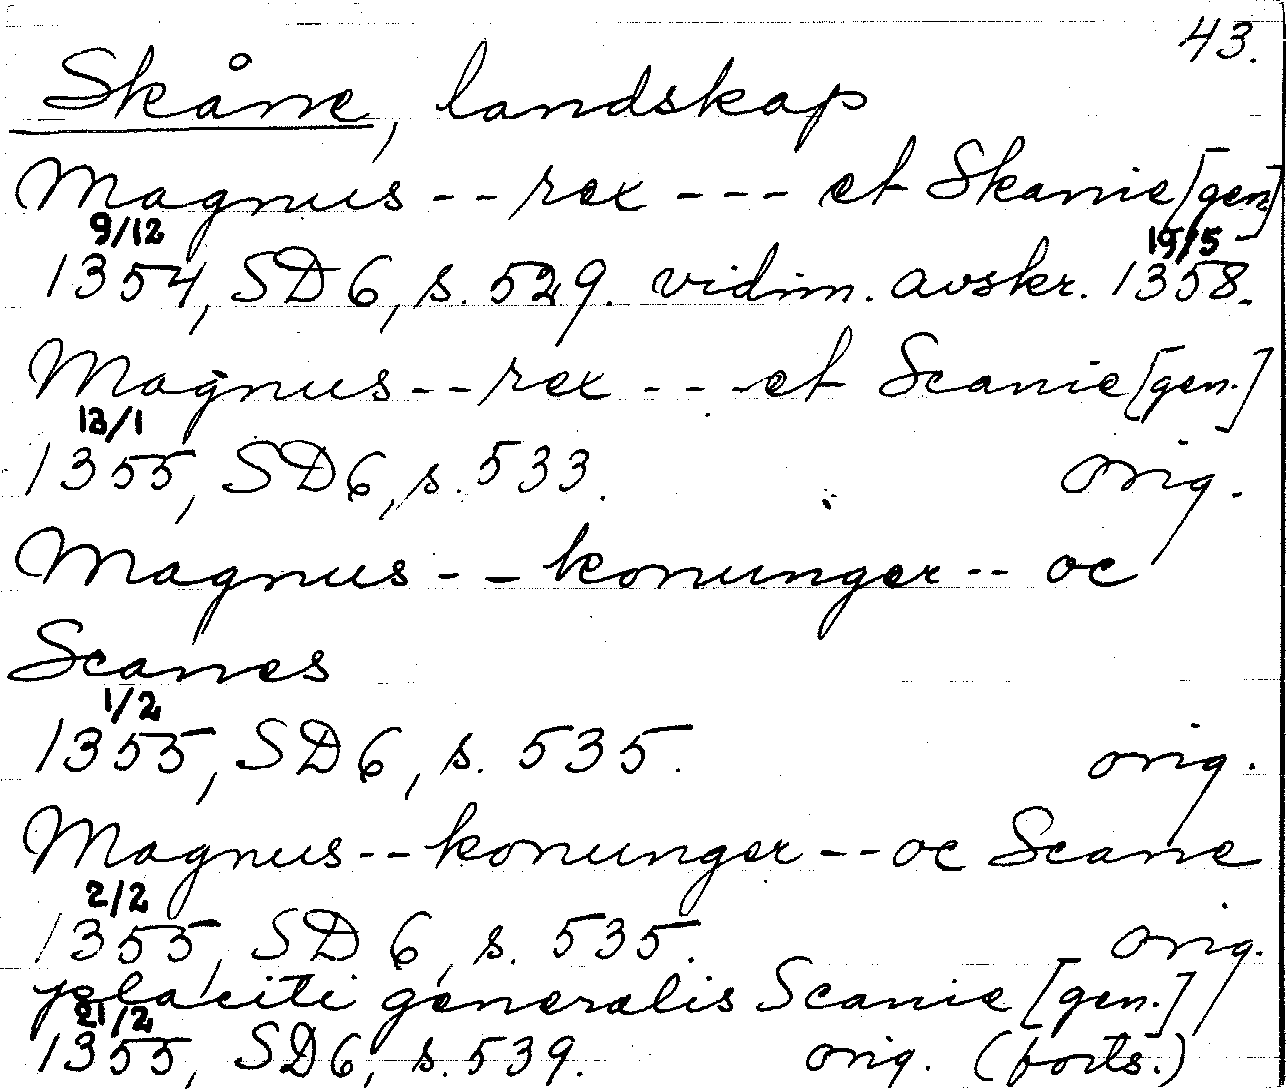 43.
Skåne, landskap
Magnus -- rex --- et Skanie [gen]
9/12 15/5
1354, SD 6, s. 529. vidim. avskr. 1358.
Magnus -- rex --- et Scanie [gen.]
13/1
1355, SD 6, s. 533. orig.
Magnus -- konunger -- oc
Scanes
1/2
1355, SD 6, s. 535. orig.
Magnus -- konunger -- oc Scane
2/2
1355, SD 6, s. 535. orig.
placiti generalis Scanie [gen.]
21/2
1355, SD 6, s. 539. orig. (forts.)